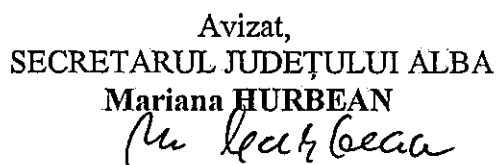 Avizat,
SECRETARUL JUDEȚULUI ALBA
Mariana HURBEAN